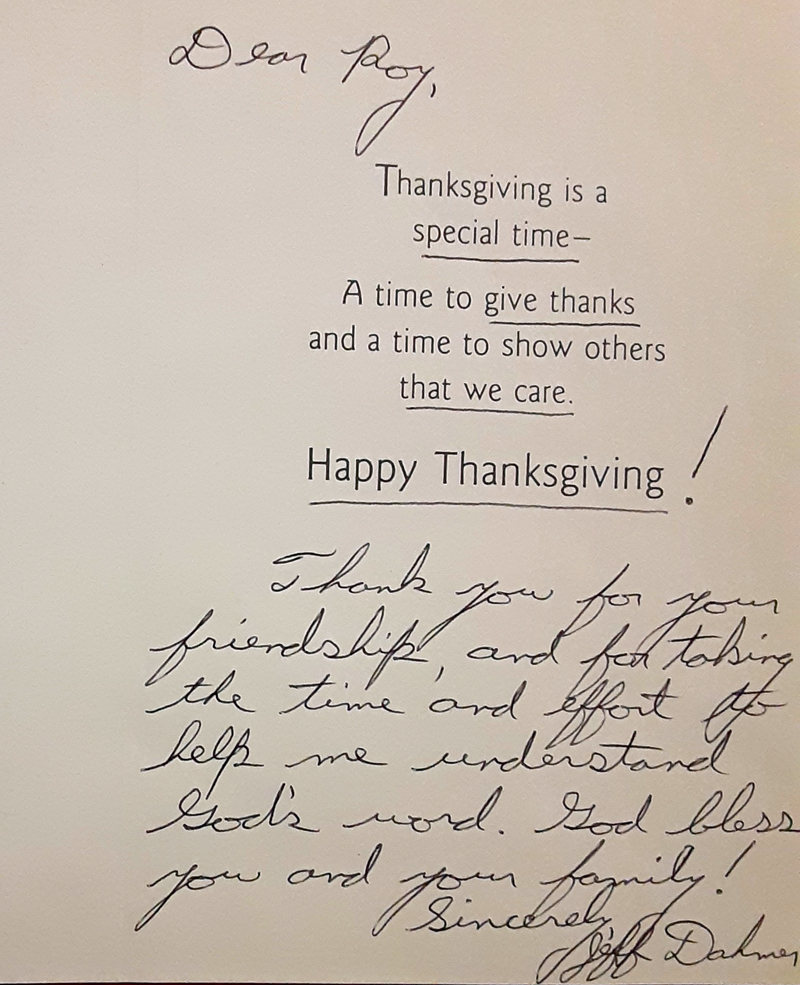 Dear Roy,
Thanksgiving is a
special time–
A time to give thanks
and a time to show others
that we care.
Happy Thanksgiving!
Thank you for your
friendship, and for taking
the time and effort to
help me understand
God's word. God bless
you and your family!
Sincerely,
Jeff Dahmer